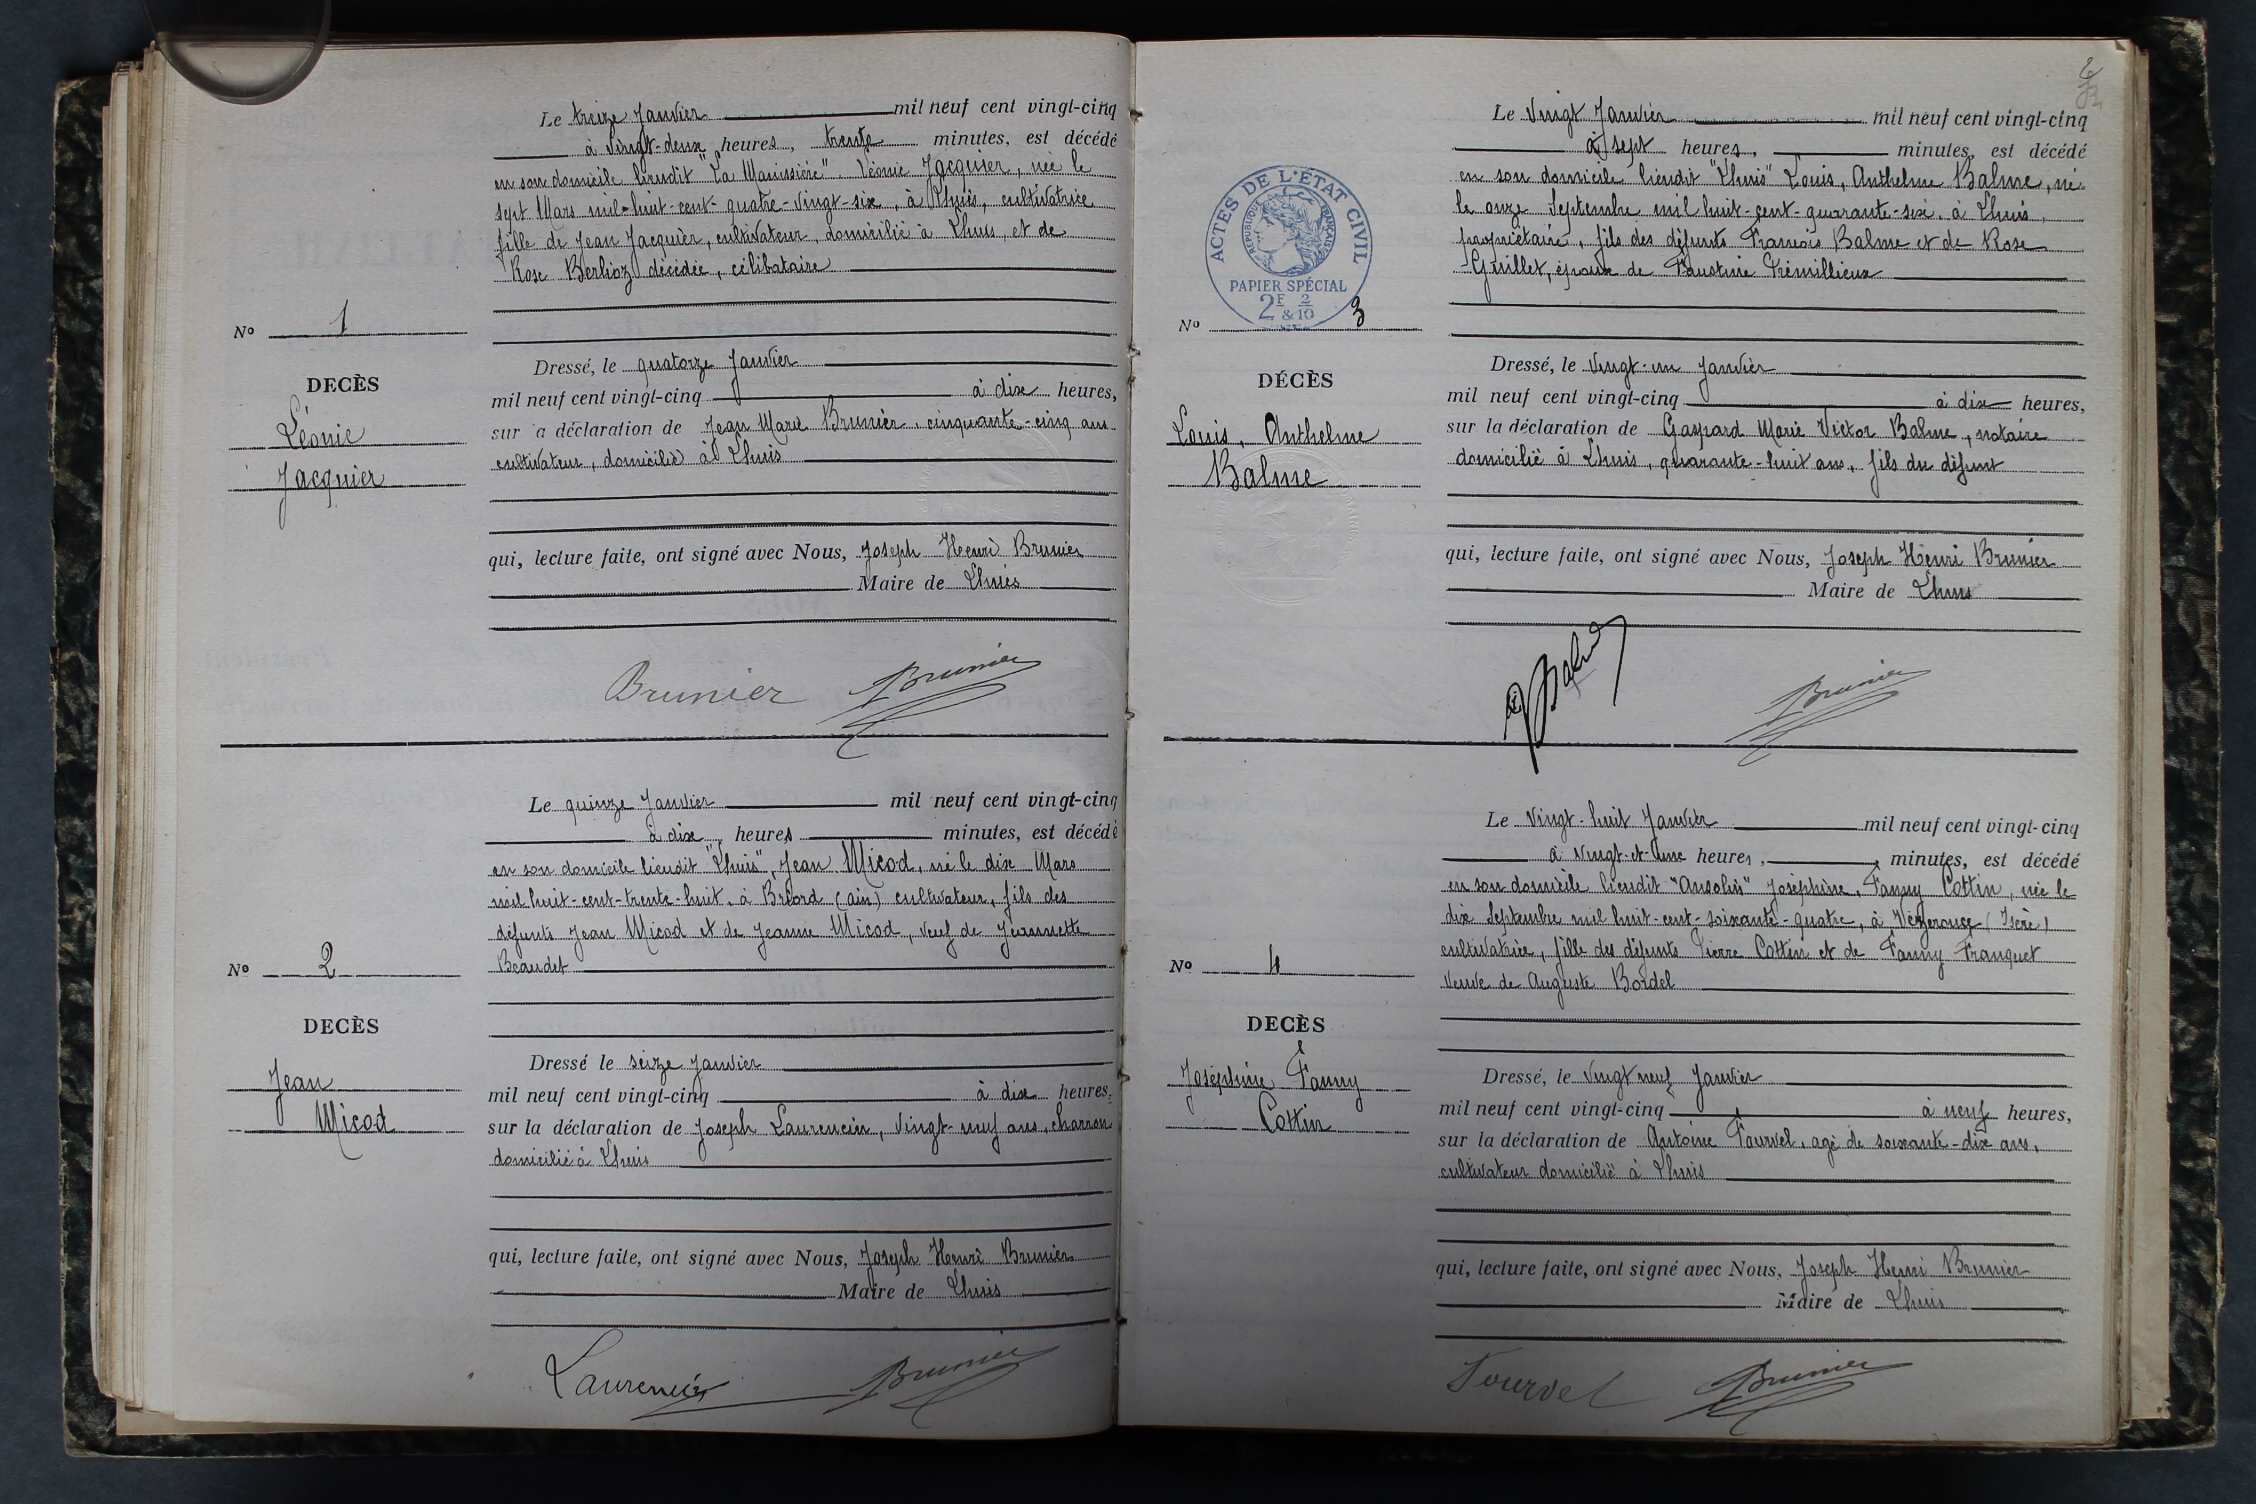 Le treize Janvier mil neuf cent vingt-cinq
à vingt-deux heures, trente minutes, est décédé
en son domicile lieudit "La Manissière". Léonie Jacquier, née le
sept Mars mil-huit-cent-quatre-vingt-six, à Lhuis, cultivatrice
fille de Jean Jacquier, cultivateur, domicilié à Lhuis, et de
Rose Berlioz décédée, célibataire
No 1
DECÈS
Léonie
Jacquier
Dressé, le quatorze Janvier
mil neuf cent vingt-cinq à dix heures,
sur a déclaration de Jean Marie Brunier, cinquante-cinq ans
cultivateur, domicilié à Lhuis
qui, lecture faite, ont signé avec Nous, Joseph Henri Brunier
Maire de Lhuis
Brunier Brunier
Le quinze Janvier mil neuf cent vingt-cinq
à dix heures minutes, est décédé
en son domicile lieudit "Lhuis", Jean Micod, né le dix Mars
mil huit-cent-trente-huit, à Briord (ain) cultivateur, fils des
défunts Jean Micod et de Jeanne Micod, veuf de Jeannette
Beaudet
No 2
DECÈS
Jean
Micod
Dressé le seize Janvier
mil neuf cent vingt-cinq à dix heures,
sur la déclaration de Joseph Laurencin, vingt-neuf ans, charron
domicilié à Lhuis
qui, lecture faite, ont signé avec Nous, Joseph Henri Brunier
Maire de Lhuis
Laurencin Brunier
Le Vingt Janvier mil neuf cent vingt-cinq
à sept heures, minutes, est décédé
en son domicile lieudit "Lhuis" Louis, Anthelme Balme, né
le onze Septembre mil huit-cent-quarante-six, à Lhuis,
propriétaire, fils des défunts François Balme et de Rose
Guillet, époux de Faustine Trémillieux
ACTES DE L'ÉTAT CIVIL
RÉPUBLIQUE FRANÇAISE
PAPIER SPÉCIAL
2F & 2/10
No 3
DÉCÈS
Louis, Anthelme
Balme
Dressé, le Vingt-un Janvier
mil neuf cent vingt-cinq à dix heures,
sur la déclaration de Gaspard Marie Victor Balme, notaire
domicilié à Lhuis, quarante-huit ans, fils du défunt
qui, lecture faite, ont signé avec Nous, Joseph Henri Brunier
Maire de Lhuis
Balme Brunier
Le Vingt-huit Janvier mil neuf cent vingt-cinq
à vingt-et-une heures, minutes, est décédé
en son domicile lieudit "Ansolin" Joséphine, Fanny Cottin, née le
dix Septembre mil huit-cent-soixante-quatre, à Vézeronce (Isère)
cultivatrice, fille des défunts Pierre Cottin et de Fanny Franquet
veuve de Auguste Bordel
No 4
DECÈS
Joséphine Fanny
Cottin
Dressé, le Vingt neuf Janvier
mil neuf cent vingt-cinq à neuf heures,
sur la déclaration de Antoine Fourvel, agé de soixante-dix ans,
cultivateur domicilié à Lhuis
qui, lecture faite, ont signé avec Nous, Joseph Henri Brunier
Maire de Lhuis
Fourvel Brunier